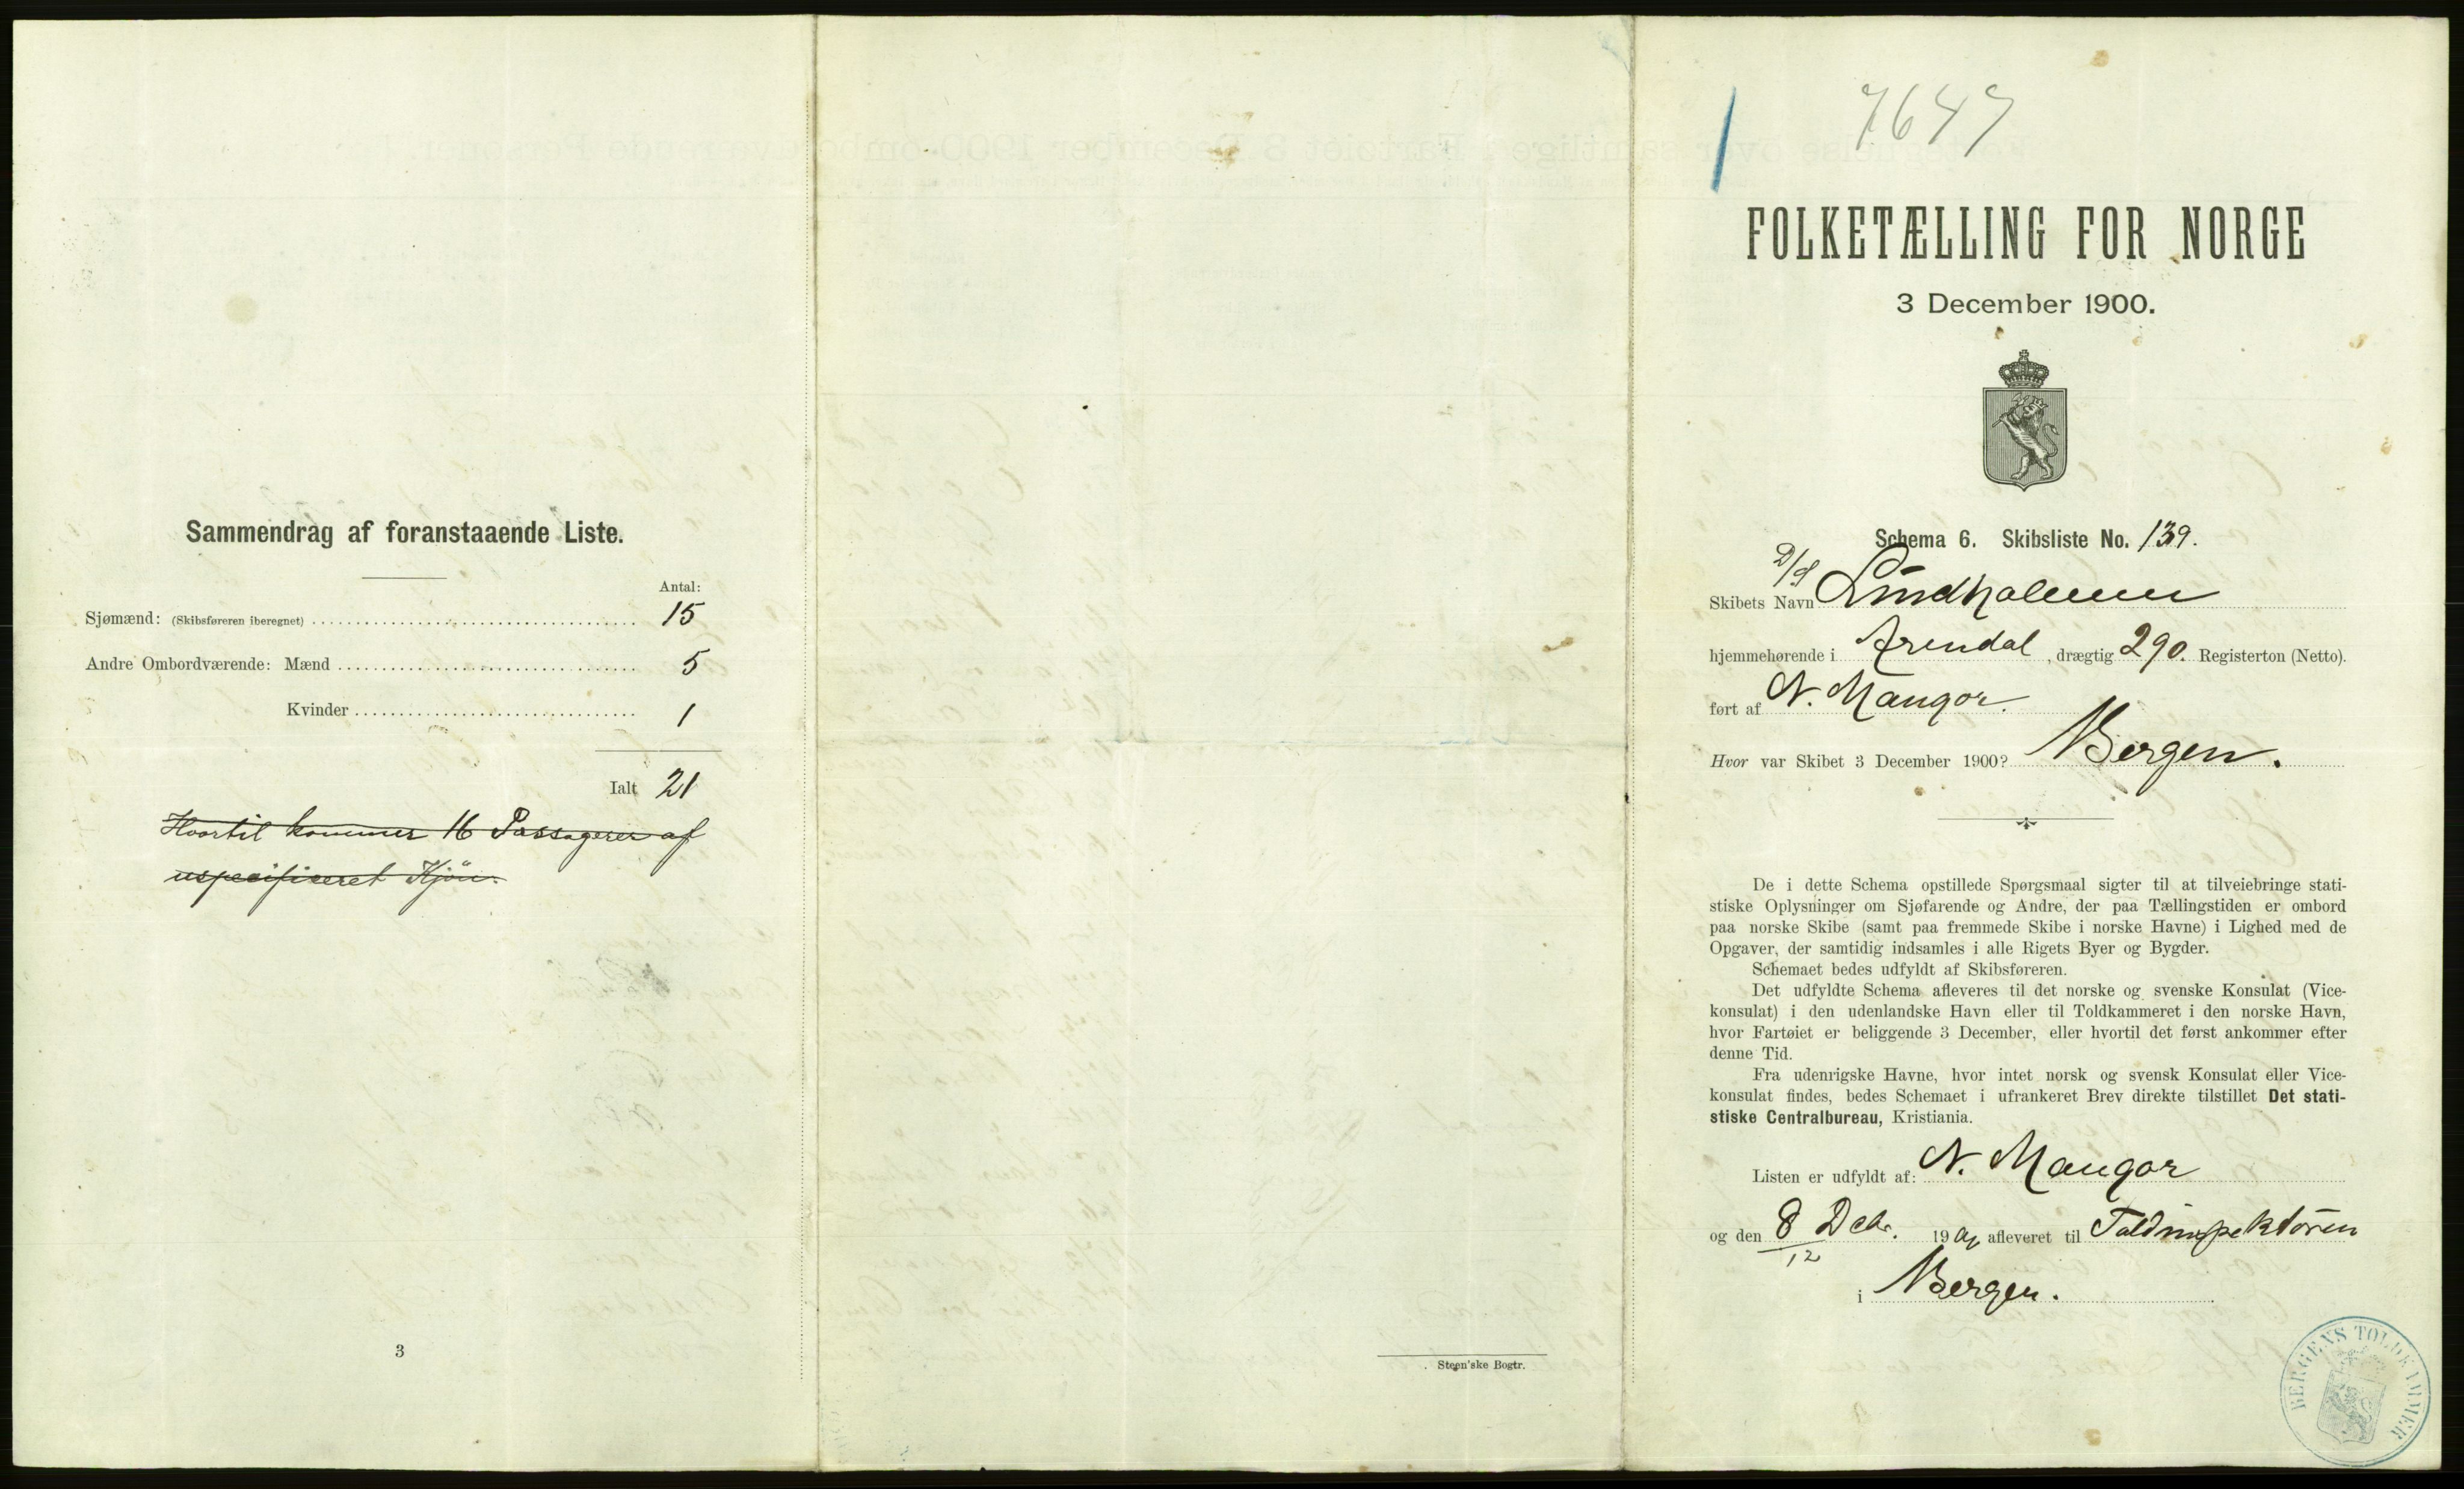 Sammendrag af foranstaaende Liste.
Antal:
Sjømænd: (Skibsføreren iberegnet) 15
Andre Ombordværende: Mænd 5
Kvinder 1
Ialt 21
Hvortil kommer 16 Passagerer af
uspecificeret Kjön.
3
Steen'ske Bogtr.
7647
FOLKETÆLLING FOR NORGE
3 December 1900.
Schema 6. Skibsliste No. 139.
D/S
Skibets Navn Lindholmen
hjemmehørende i Arendal, drægtig 290. Registerton (Netto).
ført af N. Mangor.
Hvor var Skibet 3 December 1900? Bergen.
De i dette Schema opstillede Spørgsmaal sigter til at tilveiebringe stati-
stiske Oplysninger om Sjøfarende og Andre, der paa Tællingstiden er ombord
paa norske Skibe (samt paa fremmede Skibe i norske Havne) i Lighed med de
Opgaver, der samtidig indsamles i alle Rigets Byer og Bygder.
Schemaet bedes udfyldt af Skibsføreren.
Det udfyldte Schema afleveres til det norske og svenske Konsulat (Vice-
konsulat) i den udenlandske Havn eller til Toldkammeret i den norske Havn,
hvor Fartøiet er beliggende 3 December, eller hvortil det først ankommer efter
denne Tid.
Fra udenrigske Havne, hvor intet norsk og svensk Konsulat eller Vice-
konsulat findes, bedes Schemaet i ufrankeret Brev direkte tilstillet Det stati-
stiske Centralbureau, Kristiania.
Listen er udfyldt af: N. Mangor
og den 8 Dcbr. 1900 afleveret til Toldinspektören
12
i Bergen.
BERGENS TOLDKAMMER